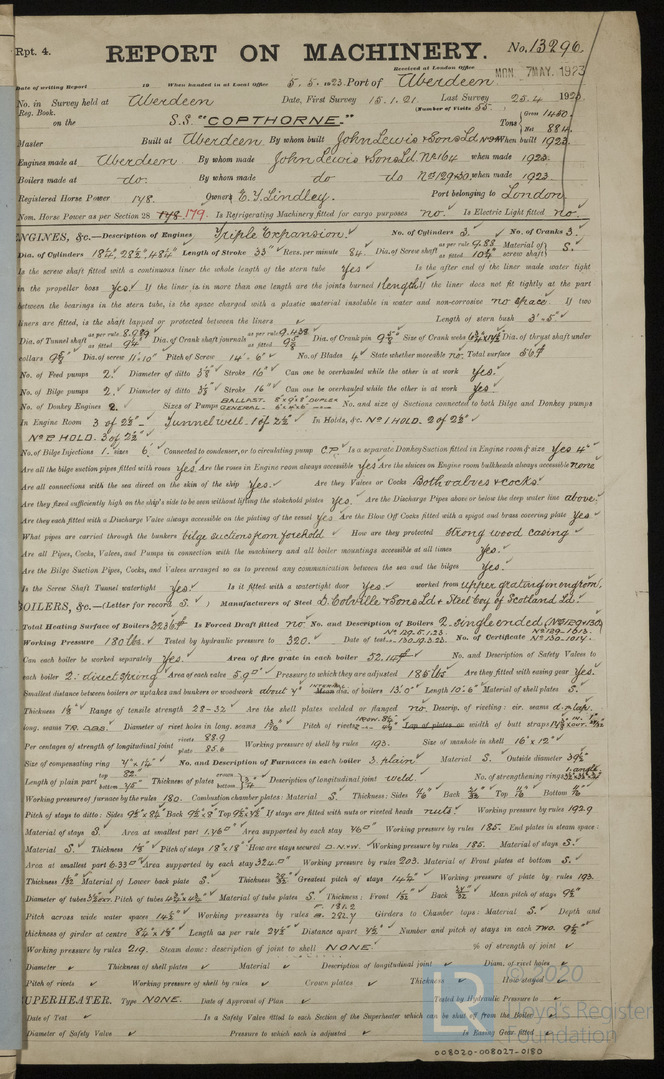 Rpt. 4.
REPORT ON MACHINERY.
No. 13296
Received at London Office
MON. 7 MAY. 1923
Date of writing Report 19 When handed in at Local Office 5.5.1923 Port of Aberdeen
No. in Survey held at Aberdeen Date, First Survey 15.1.21 Last Survey 25.4 1923
Reg. Book. (Number of Visits 55)
on the S.S. "COPTHORNE." Tons Gross 1450 Net 884
Master Built at Aberdeen By whom built John Lewis & Sons Ld When built 1923
Engines made at Aberdeen By whom made John Lewis & Sons Ld. No 164 when made 1923
Boilers made at do. By whom made do do No 129 & 130 when made 1923
Registered Horse Power 178. Owners E. T. Lindley. Port belonging to London
Nom. Horse Power as per Section 28 178 179. Is Refrigerating Machinery fitted for cargo purposes no. Is Electric Light fitted no.
ENGINES, &c.—Description of Engines Triple Expansion. No. of Cylinders 3. No. of Cranks 3.
Dia. of Cylinders Length of Stroke 33" Revs. per minute 84. Dia. of Screw shaft as per rule 9.88 as fitted 10¼" Material of screw shaft S.
Is the screw shaft fitted with a continuous liner the whole length of the stern tube Yes Is the after end of the liner made water tight
in the propeller boss yes. If the liner is in more than one length are the joints burned 1 length If the liner does not fit tightly at the part
between the bearings in the stern tube, is the space charged with a plastic material insoluble in water and non-corrosive no space. If two
liners are fitted, is the shaft lapped or protected between the liners Length of stern bush 3'-5"
Dia. of Tunnel shaft as per rule 8.989 as fitted 9¼" Dia. of Crank shaft journals as per rule 9.438 as fitted Dia. of Crank pin Size of Crank webs Dia. of thrust shaft under
collars Dia. of screw 11'-10" Pitch of Screw 14'-6" No. of Blades 4 State whether moveable no. Total surface 56
No. of Feed pumps 2. Diameter of ditto Stroke 16" Can one be overhauled while the other is at work Yes.
No. of Bilge pumps 2. Diameter of ditto Stroke 16" Can one be overhauled while the other is at work Yes.
No. of Donkey Engines 2. Sizes of Pumps BALLAST. 8"x9"x8" DUPLEX GENERAL. 6"x4"x6" No. and size of Suctions connected to both Bilge and Donkey pumps
In Engine Room 3 of 2½" Tunnel well - 1 of 2½" In Holds, &c. No 1 HOLD. 2 of 2½"
No 2 HOLD. 3 of 2½"
No. of Bilge Injections 1. sizes 6. Connected to condenser, or to circulating pump C.P. Is a separate Donkey Suction fitted in Engine room & size Yes 4"
Are all the bilge suction pipes fitted with roses Yes Are the roses in Engine room always accessible yes Are the sluices on Engine room bulkheads always accessible none
Are all connections with the sea direct on the skin of the ship Yes. Are they Valves or Cocks Both valves & cocks.
Are they fixed sufficiently high on the ship's side to be seen without lifting the stokehold plates Yes. Are the Discharge Pipes above or below the deep water line above.
Are they each fitted with a Discharge Valve always accessible on the plating of the vessel Yes Are the Blow Off Cocks fitted with a spigot and brass covering plate Yes
What pipes are carried through the bunkers bilge suctions from forehold How are they protected Strong wood casing
Are all Pipes, Cocks, Valves, and Pumps in connection with the machinery and all boiler mountings accessible at all times Yes.
Are the Bilge Suction Pipes, Cocks, and Valves arranged so as to prevent any communication between the sea and the bilges Yes.
Is the Screw Shaft Tunnel watertight Yes. Is it fitted with a watertight door Yes. worked from upper grating in eng room.
BOILERS, &c.—(Letter for record S.) Manufacturers of Steel D. Colville & Sons Ld & Steel Coy of Scotland Ld.
Total Heating Surface of Boilers Is Forced Draft fitted no. No. and Description of Boilers 2. single ended (No 129 & 130)
Working Pressure 180 lbs. Tested by hydraulic pressure to 320. Date of test No. of Certificate
Can each boiler be worked separately Yes. Area of fire grate in each boiler No. and Description of Safety Valves to
each boiler 2: direct spring Area of each valve 5.9 Pressure to which they are adjusted 185 lbs Are they fitted with easing gear Yes.
Smallest distance between boilers or uptakes and bunkers or woodwork dia. of boilers 13'.0" Length 10'-6" Material of shell plates S.
Thickness Range of tensile strength 28-32 Are the shell plates welded or flanged no. Descrip. of riveting: cir. seams d.r lap.
long. seams TR. D.B.S. Diameter of rivet holes in long. seams Pitch of rivets Top of plates or width of butt straps
Per centages of strength of longitudinal joint rivets 88.9 plate 85.6 Working pressure of shell by rules 193. Size of manhole in shell 16" x 12"
Size of compensating ring No. and Description of Furnaces in each boiler 3. plain Material S. Outside diameter
Length of plain part top bottom Thickness of plates crown bottom Description of longitudinal joint weld. No. of strengthening rings
Working pressure of furnace by the rules 180. Combustion chamber plates: Material S. Thickness: Sides Back Top Bottom
Pitch of stays to ditto: Sides Back Top If stays are fitted with nuts or riveted heads nuts. Working pressure by rules 192.9
Material of stays S. Area at smallest part 1.460 Area supported by each stay Working pressure by rules 185. End plates in steam space:
Material S. Thickness Pitch of stays 18"x18" How are stays secured D.N.W. Working pressure by rules 185. Material of stays S.
Area at smallest part 6.33 Area supported by each stay 324 Working pressure by rules 203. Material of Front plates at bottom S.
Thickness Material of Lower back plate S. Thickness Greatest pitch of stays Working pressure of plate by rules 193.
Diameter of tubes Pitch of tubes Material of tube plates S. Thickness: Front Back Mean pitch of stays
Pitch across wide water spaces Working pressures by rules Girders to Chamber tops: Material S. Depth and
thickness of girder at centre Length as per rule Distance apart Number and pitch of stays in each two.
Working pressure by rules 219. Steam dome: description of joint to shell NONE. % of strength of joint
Diameter Thickness of shell plates Material Description of longitudinal joint Diam. of rivet holes
Pitch of rivets Working pressure of shell by rules Crown plates Thickness How stayed
SUPERHEATER. Type NONE. Date of Approval of Plan Tested by Hydraulic Pressure to
Date of Test Is a Safety Valve fitted to each Section of the Superheater which can be shut off from the Boiler
Diameter of Safety Valve Pressure to which each is adjusted Is Easing Gear fitted
LR © 2020 Lloyd's Register Foundation
008020-008027-0180